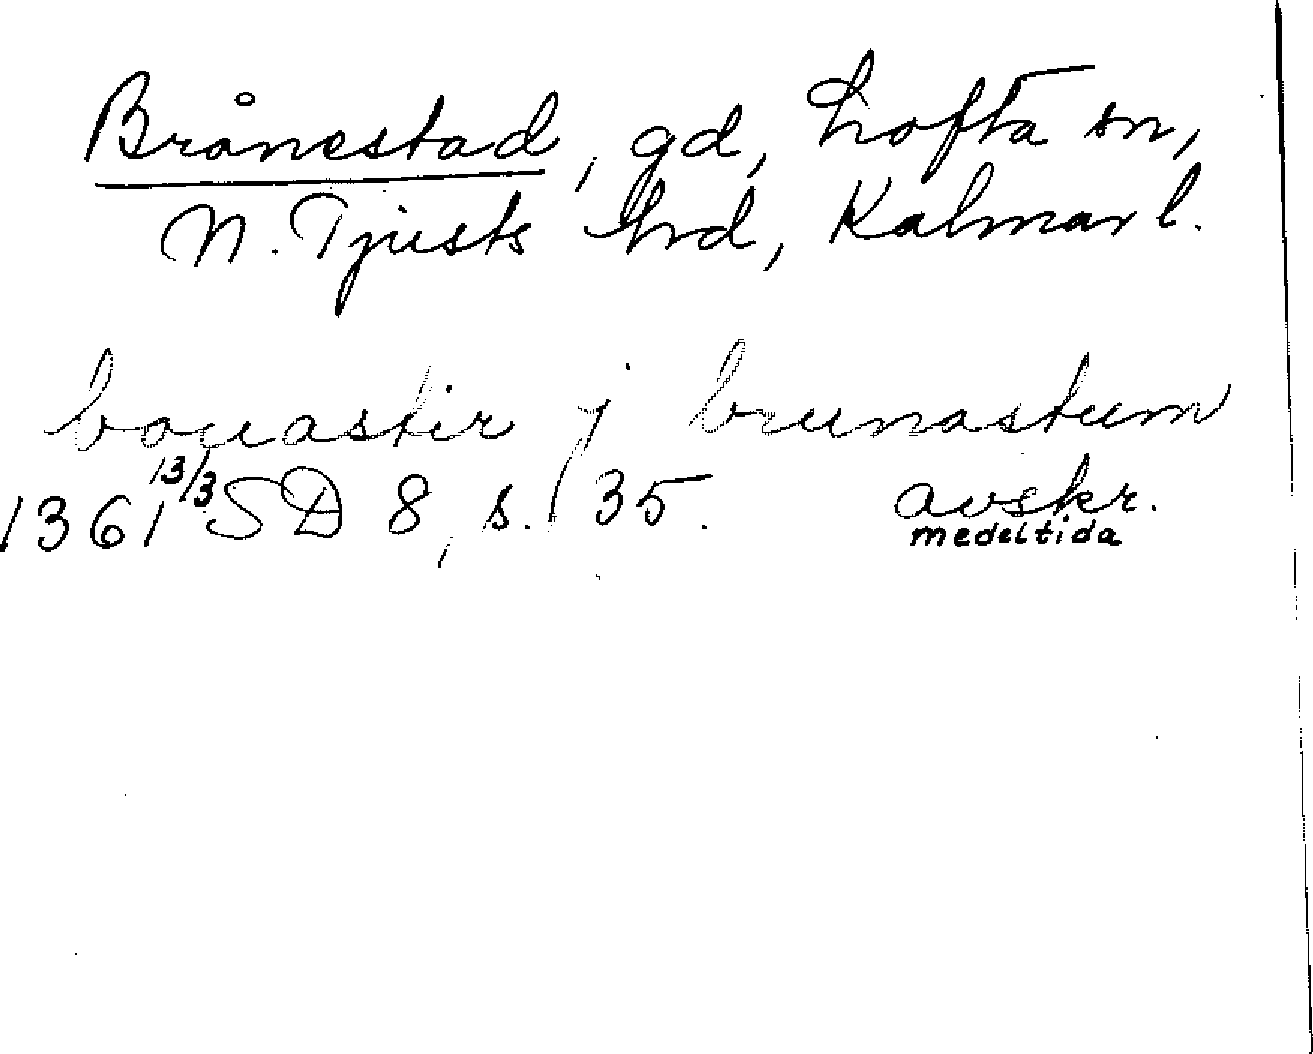 Brånestad, gd, Lofta sn,
N. Tjusts hrd, Kalmar l.
bouastir j brunastum
1361 13/3 SD 8, s. 35. avskr.
medeltida